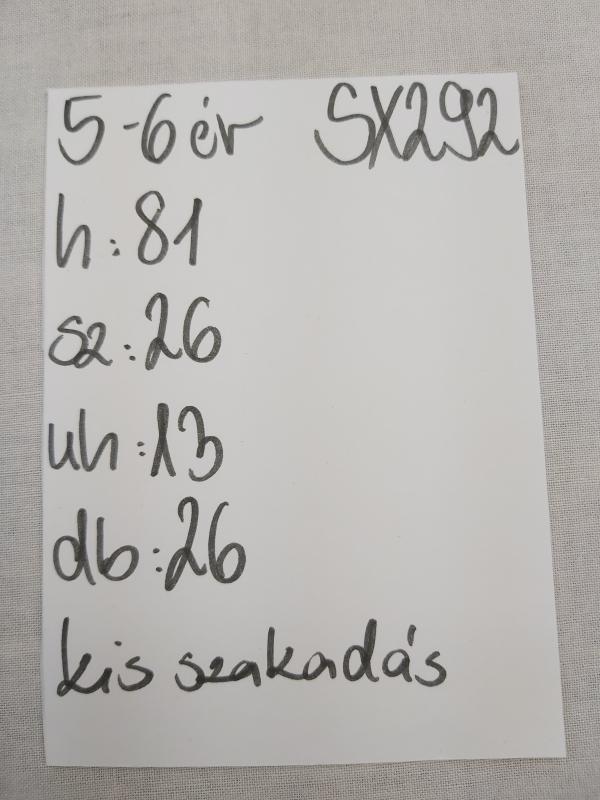 5-6 év SX292
h: 81
sz: 26
uh: 13
db: 26
kis szakadás